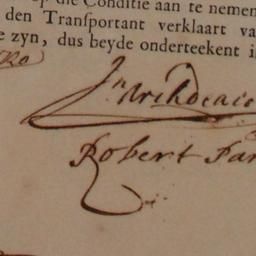 op die Conditie aan te nemen
den Tranſportant verklaart va
e zyn, dus beyde onderteekent i
Jn Archdeaco
Robert Par